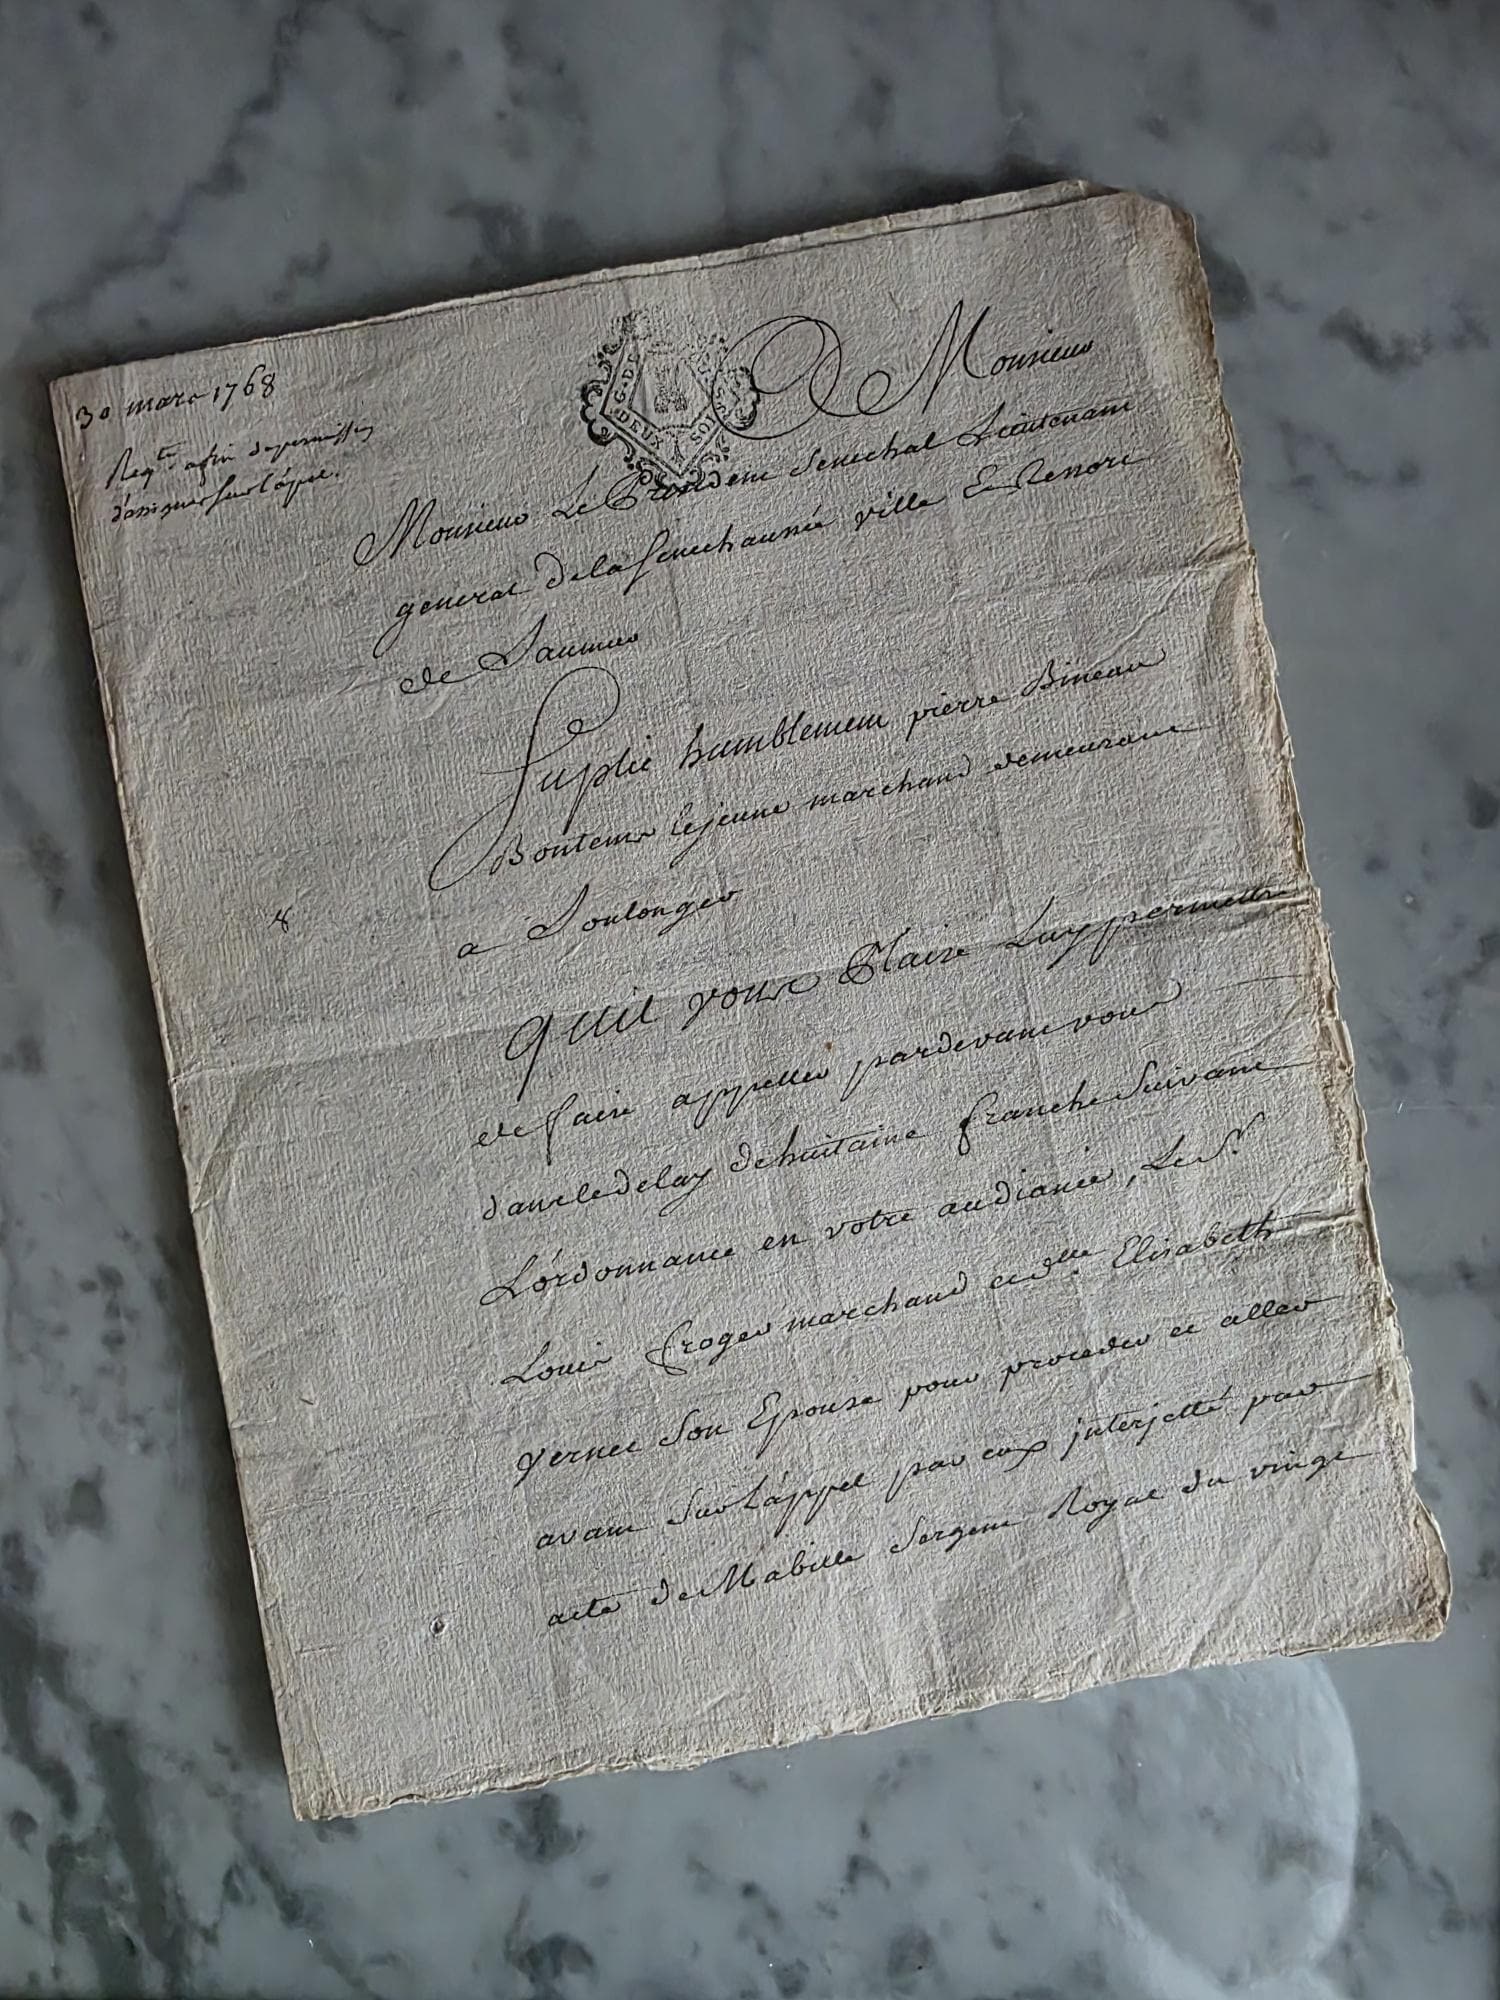 30 mars 1768
Reqte afin de permission
d'assigner sur l'apel.
G. DE
DEUX SOLS
A Monsieur
Monsieur Le President Senechal Lieutenant
general de la Senechaussée ville Et Ressort
de Saumur
Suplie humblement pierre Bineau
Boutems le jeune marchand demeurant
a Soulonger
quil vous Plaise Luy permettre
de faire appeller pardevant vous
dans le delay de huitaine franche Suivant
L'ordonnance en votre audiance, Le Sr
Louis froger marchand et dlle Elisabeth
Vernee Son Epouse pour proceder et aller
avant Sur L'appel par eux interjetté par
acte de Mabille Sergent Royal du vingt